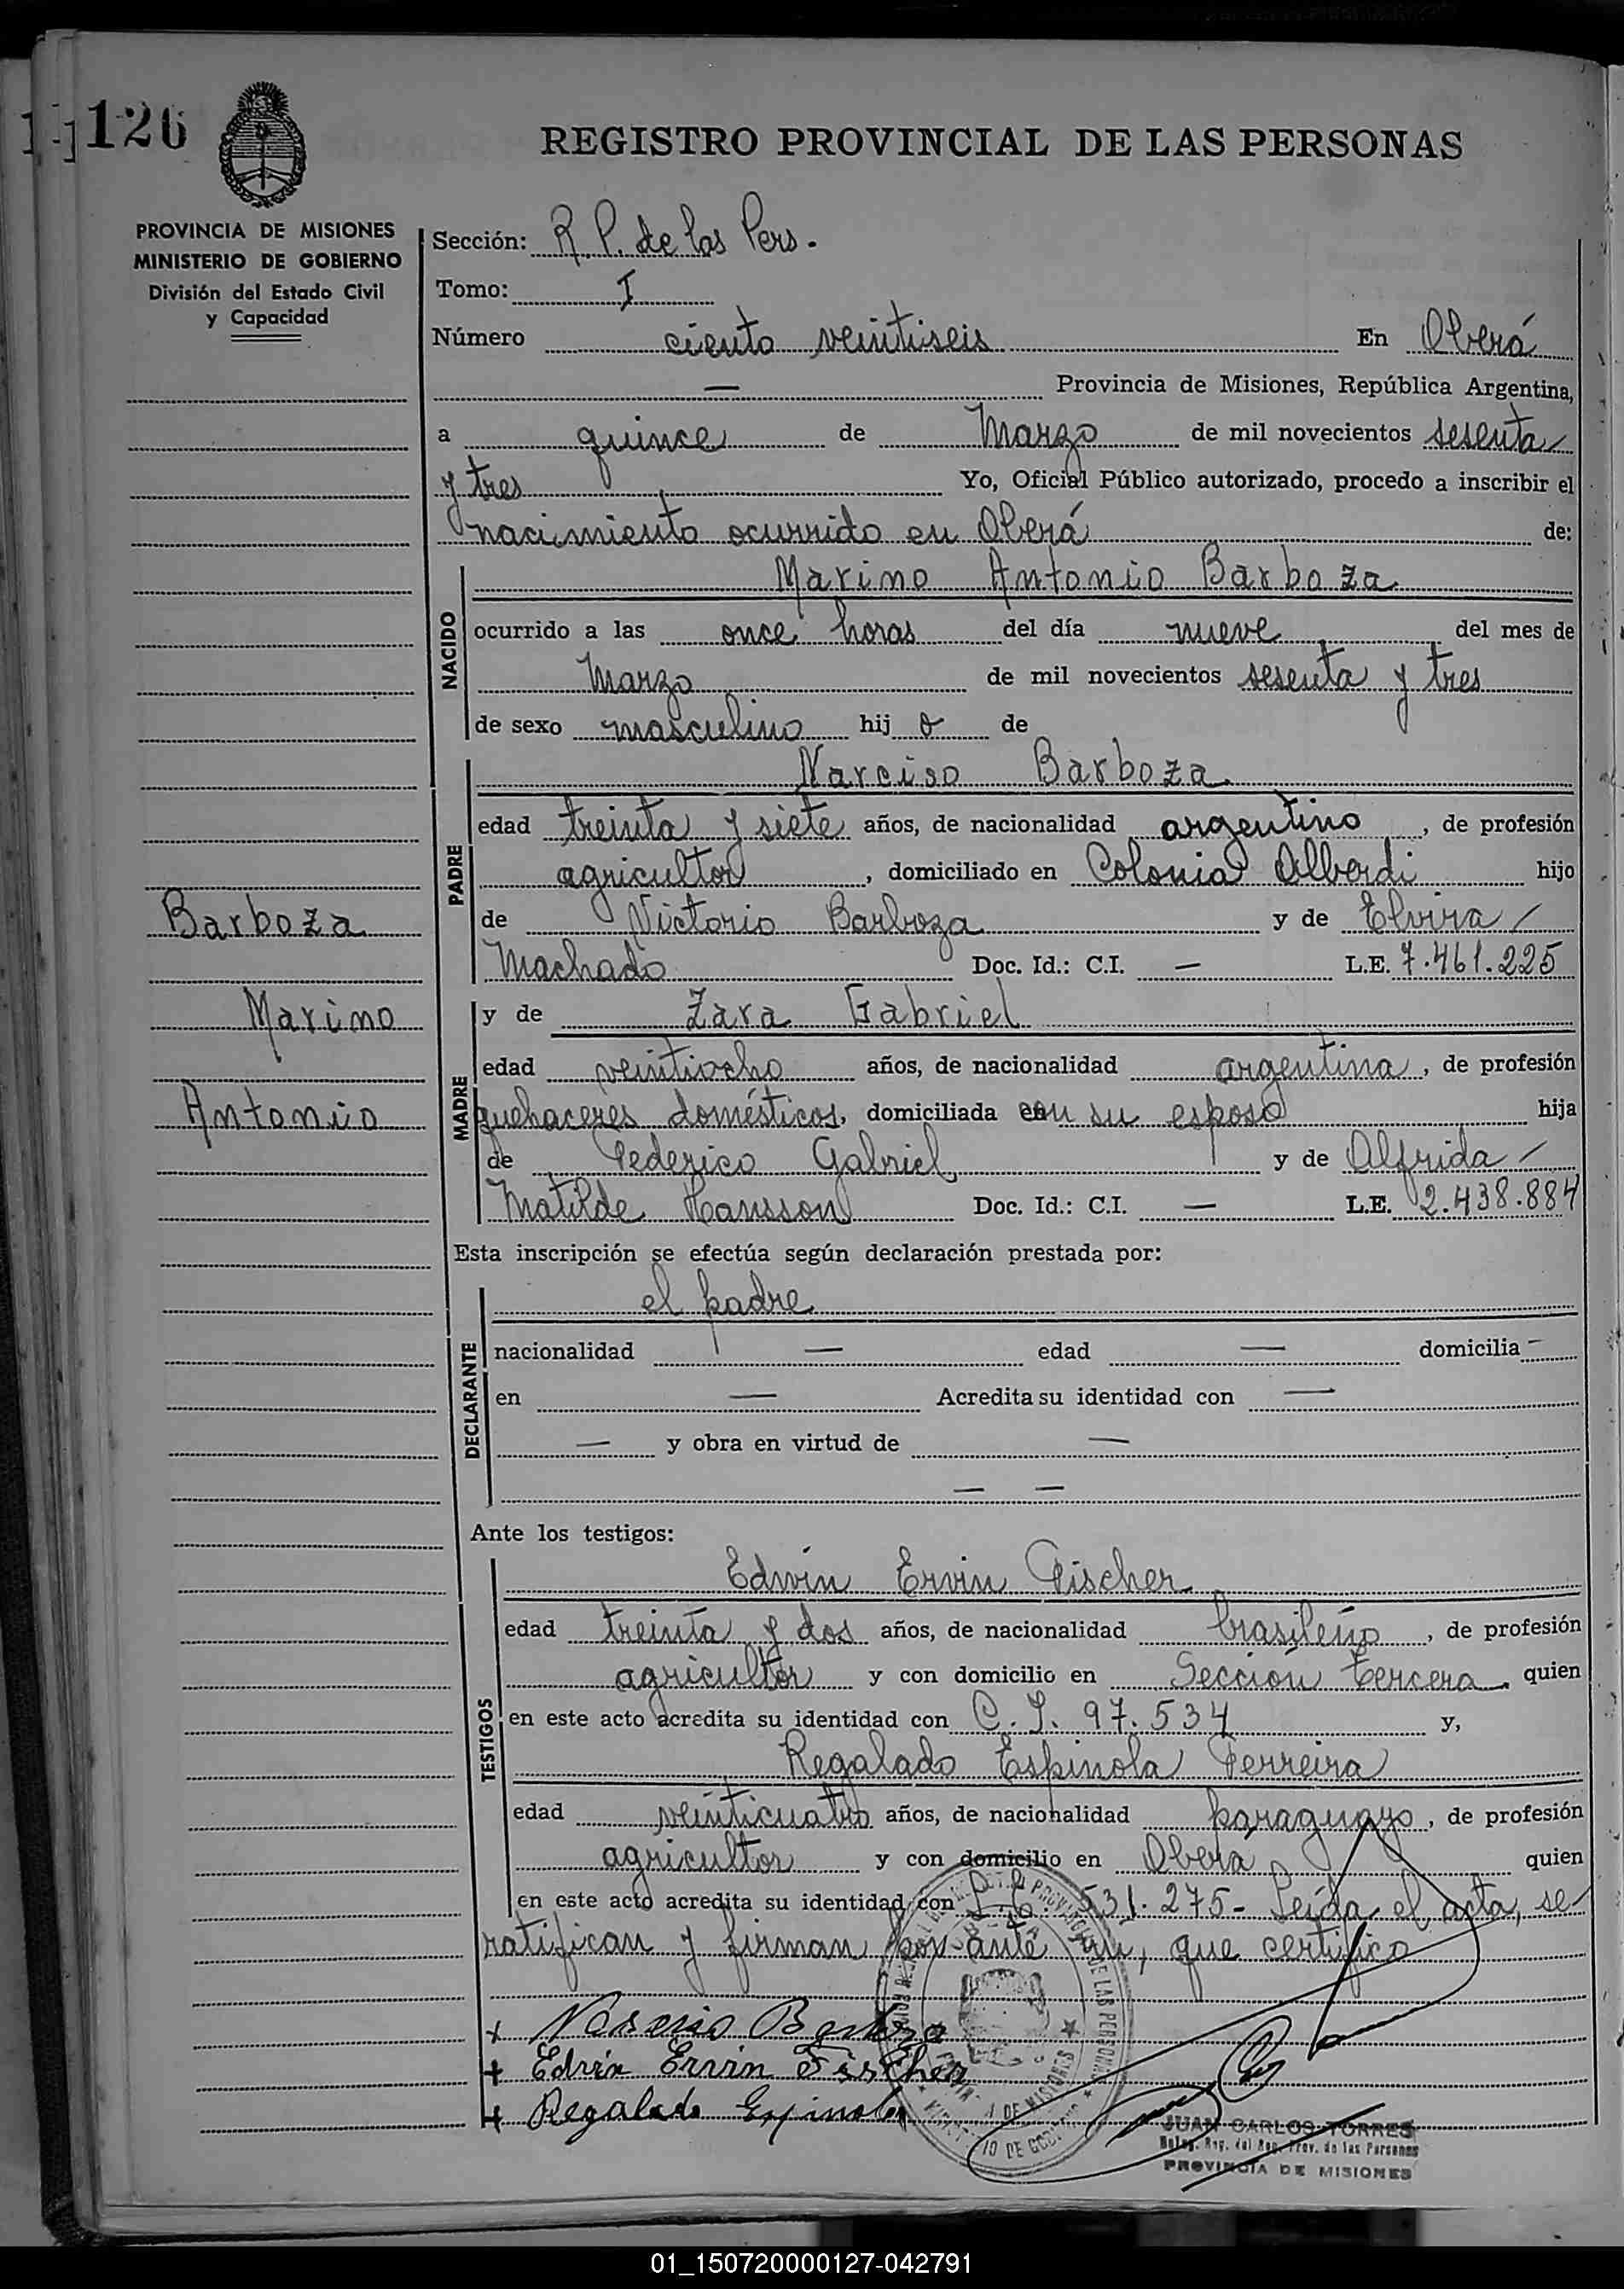 126
REGISTRO PROVINCIAL DE LAS PERSONAS
PROVINCIA DE MISIONES
MINISTERIO DE GOBIERNO
División del Estado Civil
y Capacidad
Sección: R. P. de las Pers.
Tomo: I
Número ciento veintiseis En Oberá
— Provincia de Misiones, República Argentina,
a quince de Marzo de mil novecientos sesenta
y tres Yo, Oficial Público autorizado, procedo a inscribir el
nacimiento ocurrido en Oberá de:
NACIDO
Marino Antonio Barboza
ocurrido a las once horas del día nueve del mes de
Marzo de mil novecientos sesenta y tres
de sexo masculino hijo de
PADRE
Narciso Barboza
edad treinta y siete años, de nacionalidad argentino, de profesión
agricultor, domiciliado en Colonia Alberdi hijo
Barboza
de Victorio Barboza y de Elvira
Machado Doc. Id.: C.I. — L.E. 7.461.225
Marino
MADRE
y de Zara Gabriel
edad veintiocho años, de nacionalidad argentina, de profesión
Antonio
quehaceres domésticos, domiciliada con su esposo hija
de Federico Gabriel y de Alfrida
Matilde Hansson Doc. Id.: C.I. — L.E. 2.438.884
Esta inscripción se efectúa según declaración prestada por:
DECLARANTE
el padre
nacionalidad — edad — domicilia —
en — Acredita su identidad con —
— y obra en virtud de —
— —
Ante los testigos:
TESTIGOS
Edwin Ervin Fischer
edad treinta y dos años, de nacionalidad brasileño, de profesión
agricultor y con domicilio en Sección tercera, quien
en este acto acredita su identidad con C. I. 97.534 y,
Regalado Espinola Ferreira
edad veinticuatro años, de nacionalidad paraguayo, de profesión
agricultor y con domicilio en Oberá quien
en este acto acredita su identidad con 531.275- Leída el acta, se
ratifican y firman por ante mi, que certifico
+ Narciso Barboza
+ Edvin Ervin Fischer
+ Regalado Espinola
JUAN CARLOS TORRES
Prov. de las Personas
PROVINCIA DE MISIONES
01_150720000127-042791